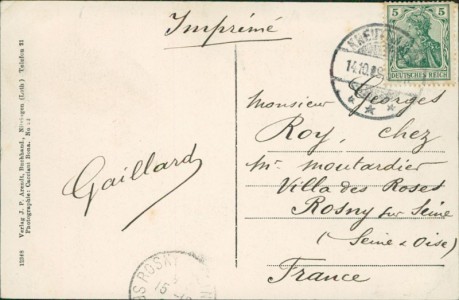 Imprimé
5 5
DEUTSCHES REICH
14.10.09
Monsieur Georges
Roy, chez
Mr. Moutardier
Villa des Roses
Rosny sur Seine
(Seine & Oise)
France
Gaillard
ROSNY
15
Verlag J. P. Arendt, Buchhand., Büsingen (Lothr.) Telefon 21
Photographie: Cantiani Bona.